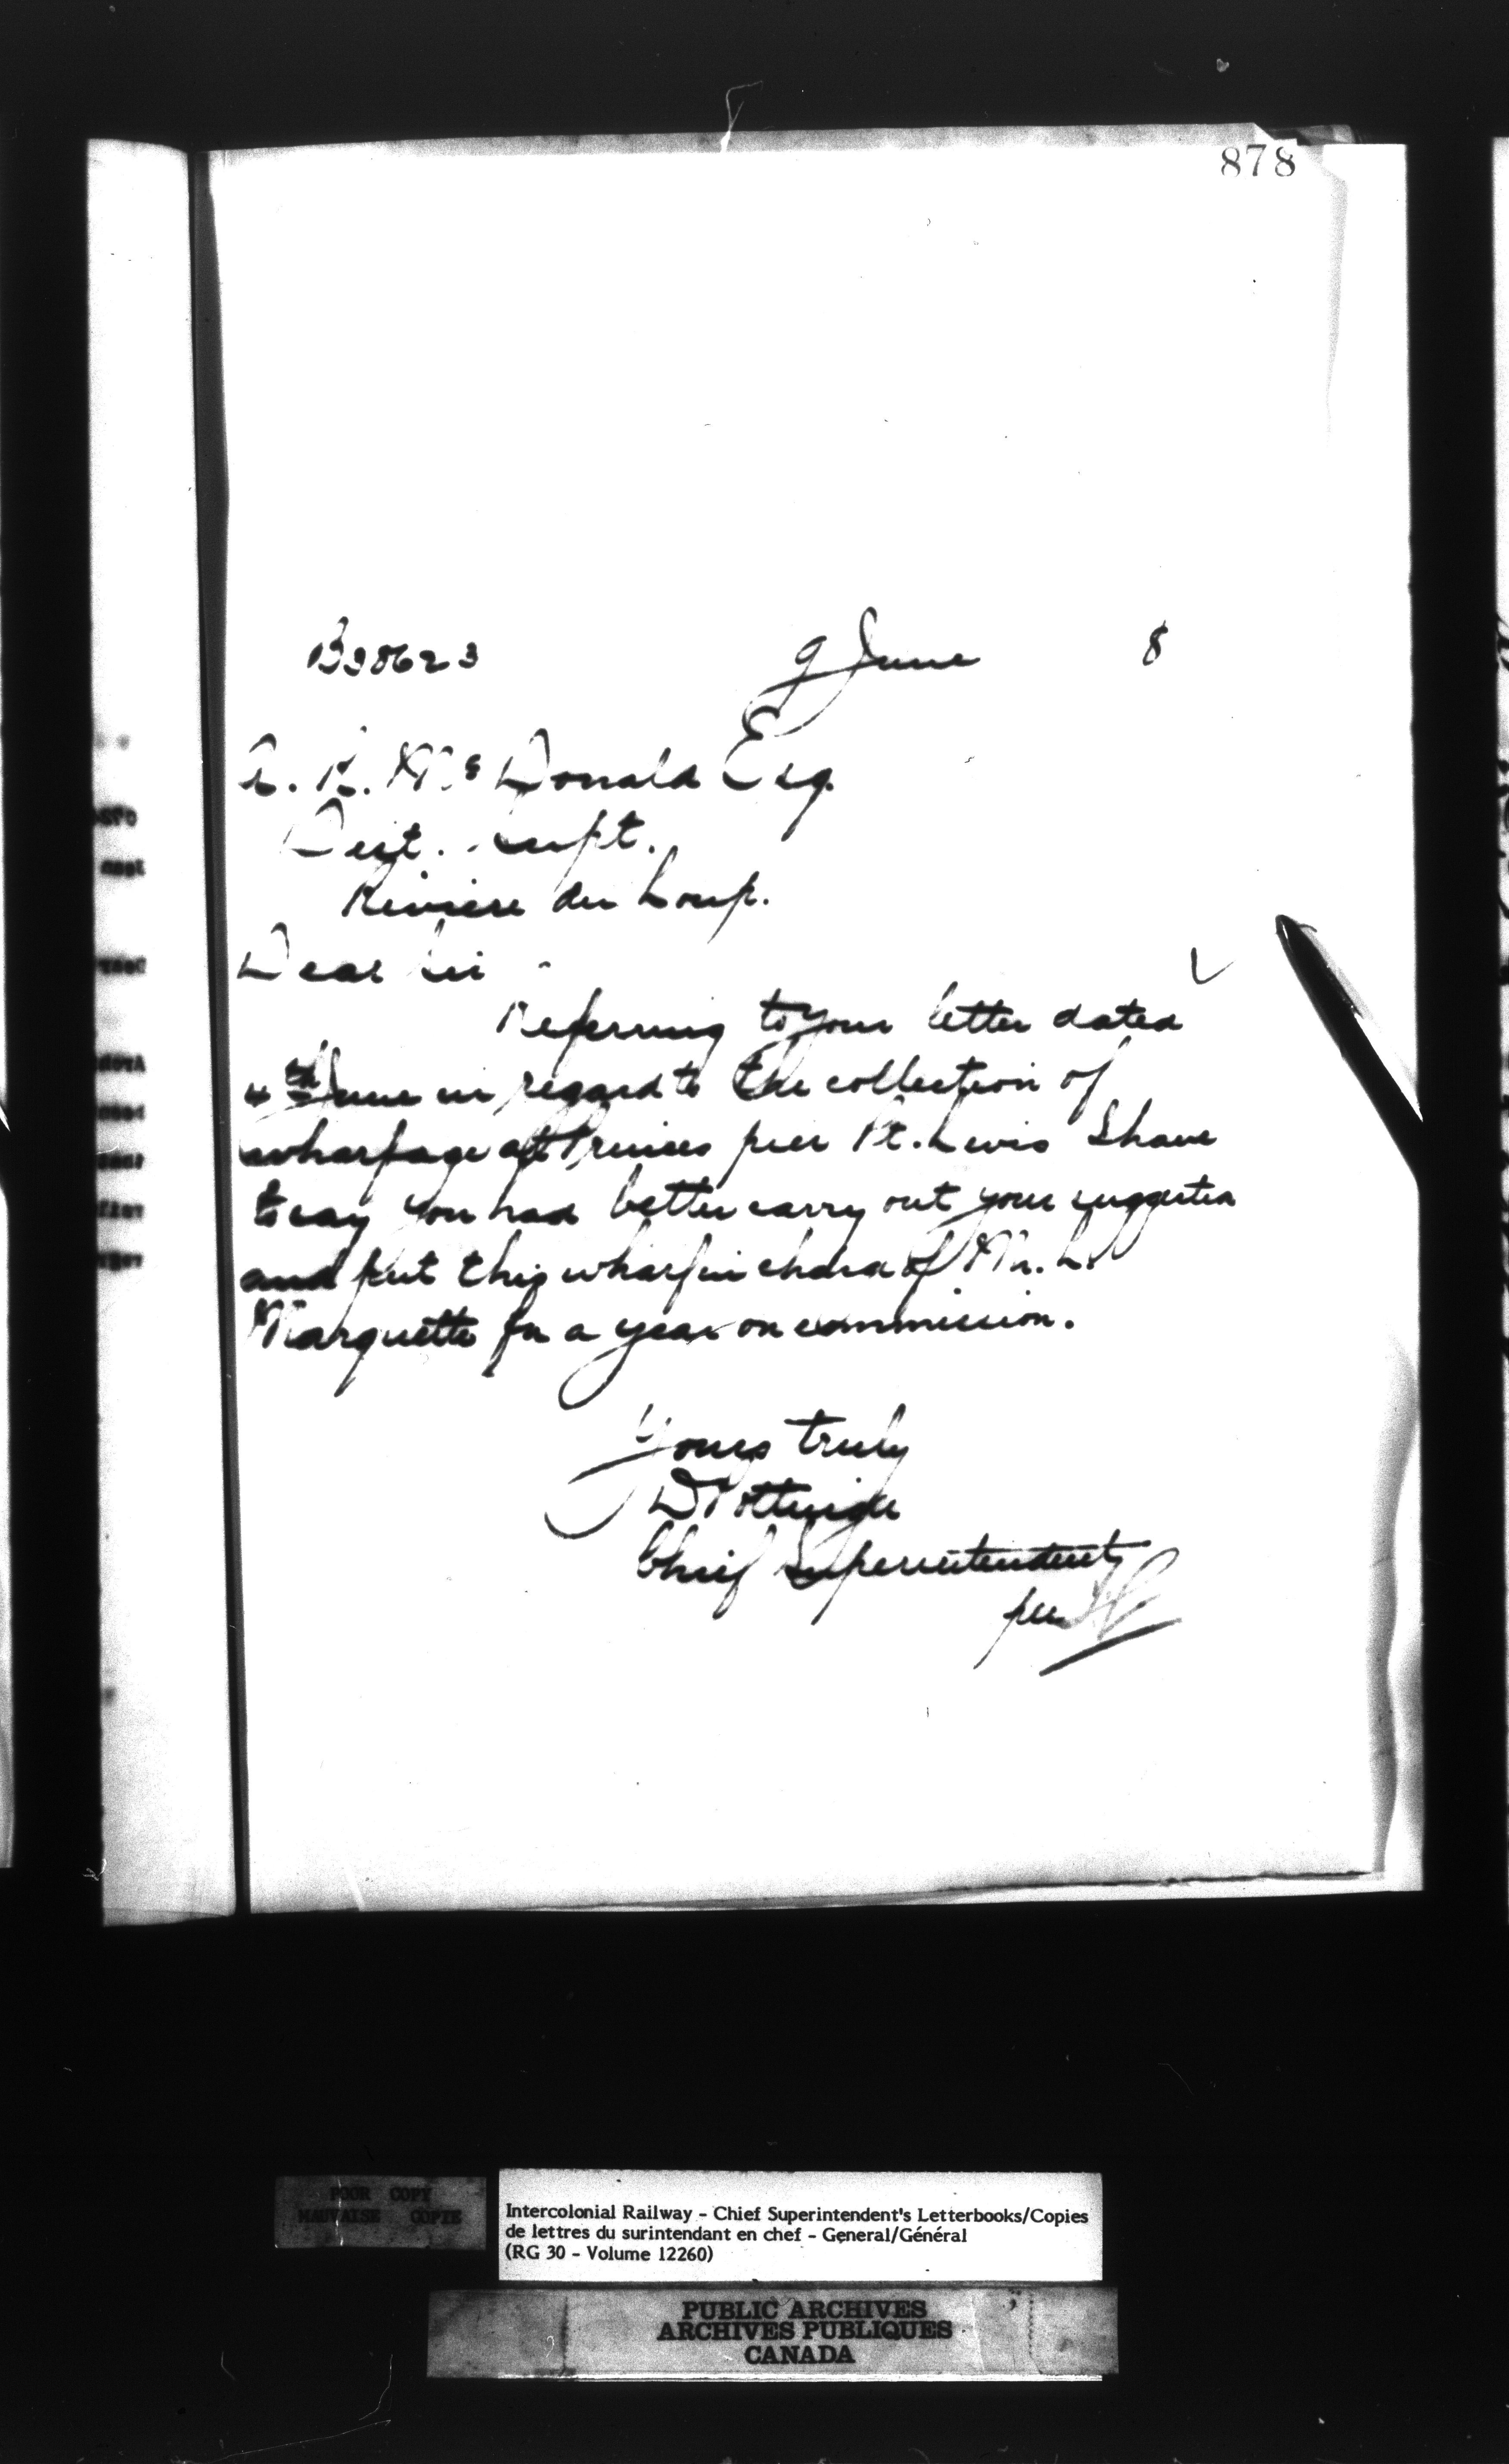 878
B38623 9 June 8
A. R. McDonald Esq.
Dist. Supt.
Riviere du Loup.
Dear Sir
Referring to your letter dated
4th June in regard to the collection of
wharfage at Princes pier Pt. Levis I have
to say you had better carry out your suggestion
and put this wharf in charge of Mr. L.
Marquette for a year on commission.
Yours truly
D Pottinger
Chief Superintendent
per
POOR COPY
MAUVAISE COPIE
Intercolonial Railway - Chief Superintendent's Letterbooks/Copies
de lettres du surintendant en chef - General/Général
(RG 30 - Volume 12260)
PUBLIC ARCHIVES
ARCHIVES PUBLIQUES
CANADA